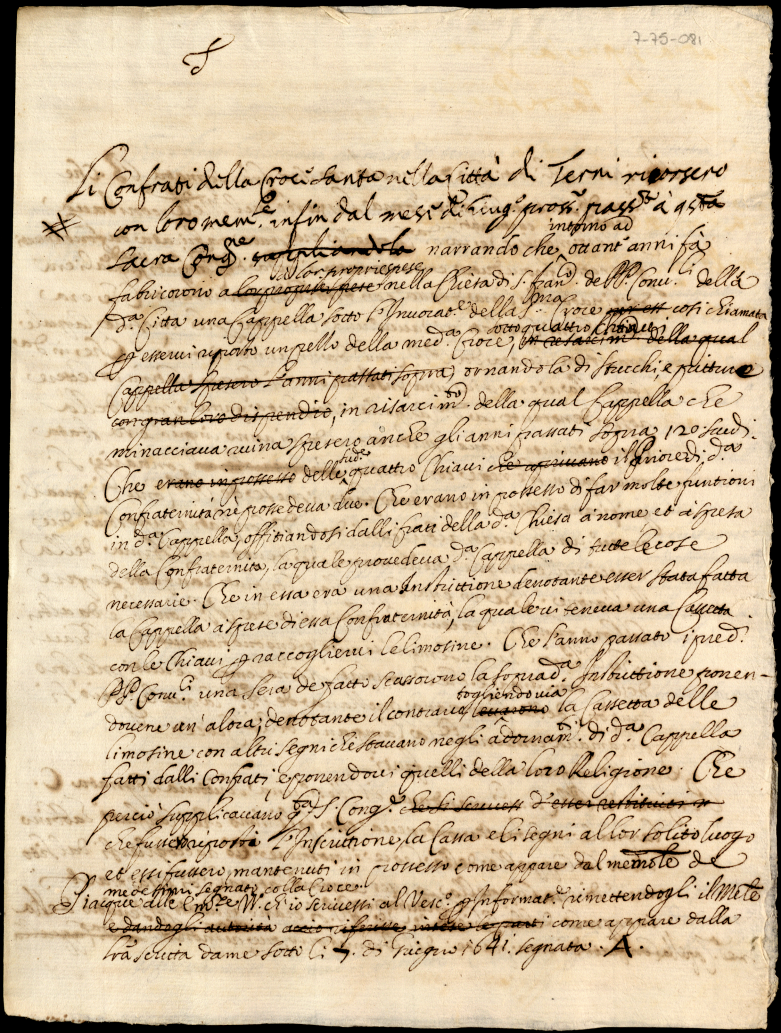 7-75-081
Li Confrati della Croce Santa nella Città di Terni ricorsero
con loro mem.e infin dal mese di Giug.o pross.o pass.to à q.sta
intorno ad
Sacra Cong.ne narrando che ottant'anni fà
a lor proprie spese
fabricorono a lor proprie spese nella Chiesa di S. Fran.co de PP. Conv.li della
d.a Città una Cappella sotto l'Invocat.e della S.ma Croce così chiamata
sotto quattro Chiavi
p esservi riposto un pezzo della med.a Croce, in risarcim.to della qual
Cappella spesero l'anni passati sopra, ornandola di stucchi, e pitture
con gran loro dispendio, in risarcim.to della qual Cappella che
minacciava ruina spesero anche gli anni passati sopra 120 scudi.
Che erano in possesso delle sud.e quattro Chiavi che aprivano il Priore di d.a
Confraternità ne possedeva due. Che erano in possesso di far molte funtioni
in d.a Cappella, offitiandosi dalli frati della d.a Chiesa à nome et à spesa
della Confraternita, la quale provedeva d.a Cappella di tutte le cose
necessarie. Che in essa era una Inscrittione denotante esser stata fatta
la Cappella a spese di essa Confraternità, la quale vi teneva una Cassetta
con le Chiavi p raccogliervi le limosine. Che l'anno passato i pred.i
PP. Conv.li una sera de facto scassorono la soprad.a Inscrittione ponen-
togliendo via
dovene un'altra, denotante il contrario levarono la Cassetta delle
limosine con altri segni che stavano negli adornam.ti di d.a Cappella
fatti dalli Confrati, e ponendovi quelli della loro Religione. Che
perciò supplicavano q.sta S. Cong.e che si scrivess d'esser restituiti
che fusse riposta l'Inscrittione, la Cassa e li segni al lor solito luogo
et essi fussero mantenuti in possesso come appare dal memole de
medesimi segnato colla Croce
Piacque alle Em.ze VV. ch'io scrivessi al Vesc.o p Informat.e rimettendogli il Mele
e dandogli autorità acciò riferisse intese le parti come appare dalla
tra scritta da me sotto li 7. di Giugno 1641. segnata. A.